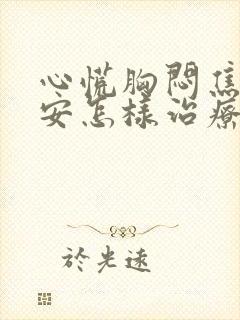 心慌胸闷焦
安怎样治疗
於光远